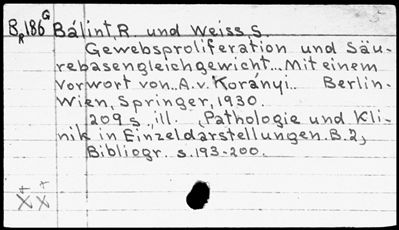 BR186G Bálint, R. und Weiss, S.
Gewebsproliferation und Säu-
rebasengleichgewicht... Mit einem
Vorwort von A.v. Korányi.. Berlin-
Wien, Springer, 1930.
209 s., ill. „Pathologie und Kli-
nik in Einzeldarstellungen. B. 2„
Bibliogr. s. 193-200.
XX